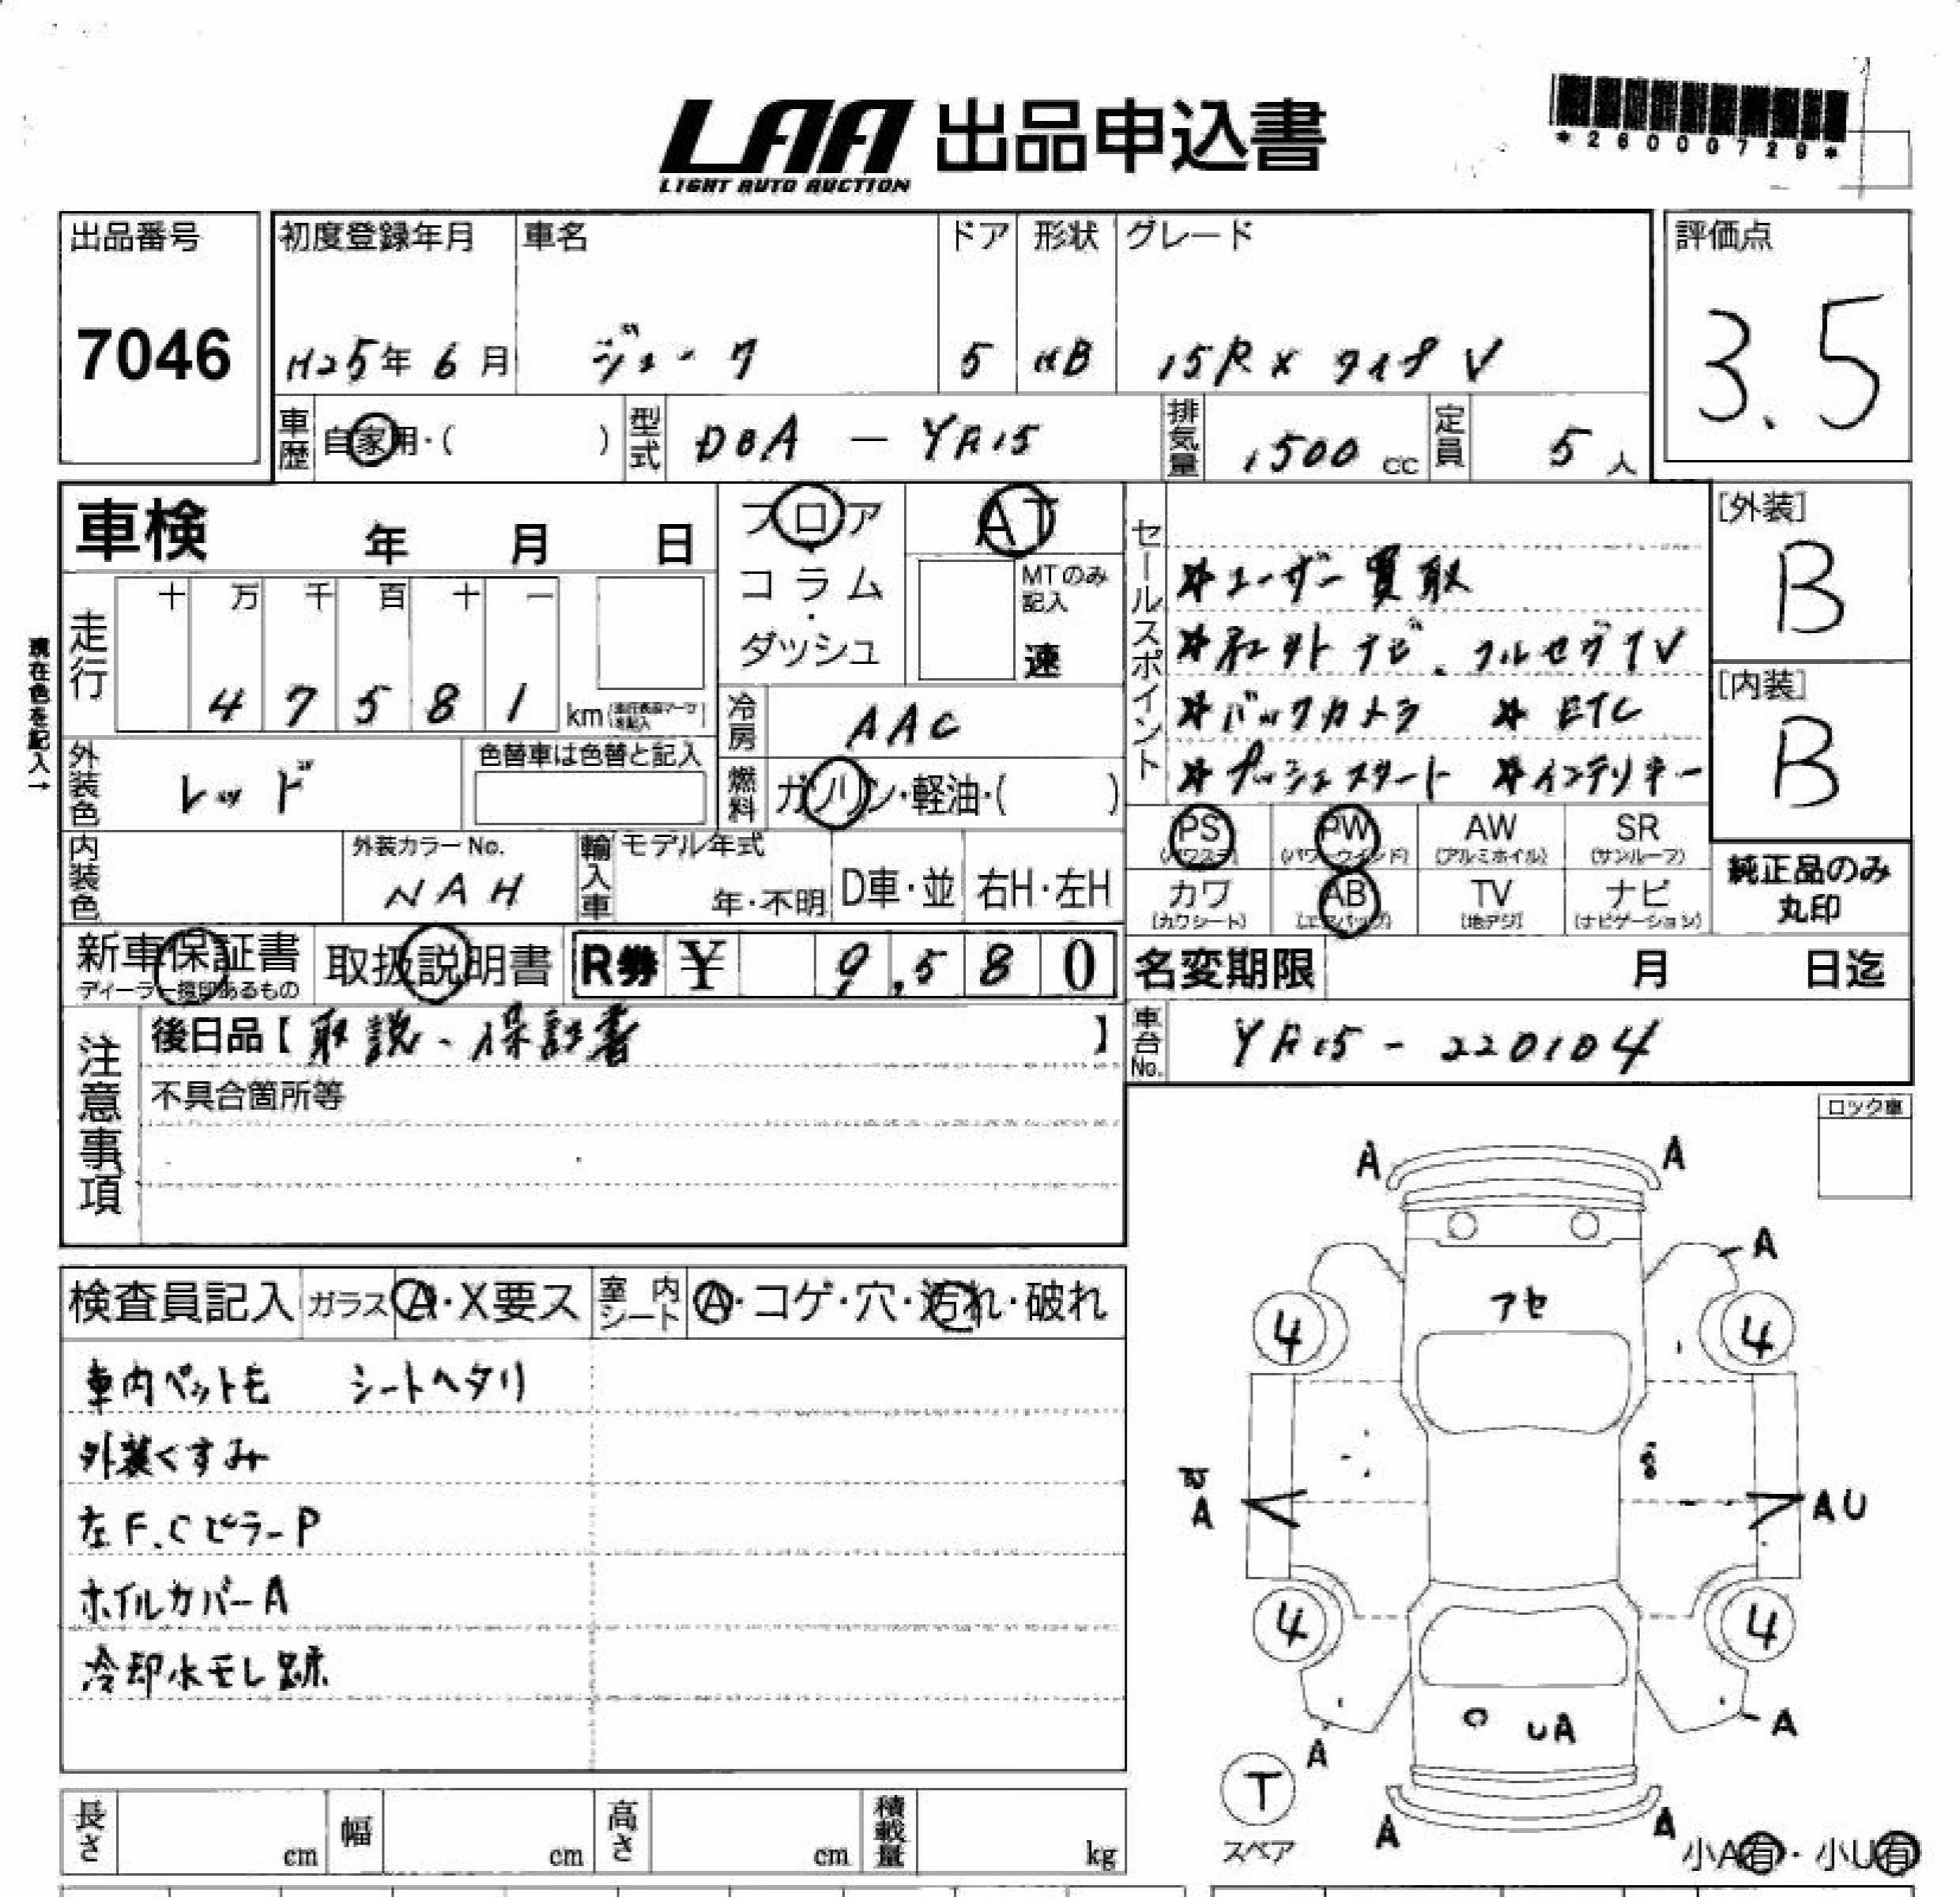 LAA 出品申込書
LIGHT AUTO AUCTION
*26000729*
出品番号 初度登録年月 車名 ドア 形状 グレード 評価点
7046 H25年 6月 ジューク 5 HB 15RX タイプV 3.5
車歴 自家用・( ) 型式 DBA - YF15 排気量 1500 cc 定員 5人
車検 年 月 日
フロア・コラム・ダッシュ
AT
MTのみ記入 速
セールスポイント
*ユーザー買取
*社外ナビ、フルセグTV
*バックカメラ *ETC
*プッシュスタート *インテリキー
[外装]
B
[内装]
B
走行 十 万 千 百 十 一
4 7 5 8 1 km
現在色を記入→
冷房 AAC
外装色 レッド 色替車は色替と記入
燃料 ガソリン・軽油・( )
PS (パワステ) PW (パワーウインド) AW (アルミホイル) SR (サンルーフ)
カワ (カワシート) AB (エアバッグ) TV (地デジ) ナビ (ナビゲーション)
純正品のみ
丸印
内装色 外装カラーNo. NAH 輸入車 モデル年式 年・不明 D車・並 右H・左H
新車保証書 取扱説明書 R券 ¥ 9,580
ディーラー捺印あるもの
名変期限 月 日迄
注意事項
後日品【取説、保証書】
不具合箇所等
車台No. YF15-220104
ロック車
検査員記入 ガラス A・X要ス 室内シート A・コゲ・穴・汚れ・破れ
車内ペット毛 シートヘタリ
外装くすみ
左F.CピラーP
ホイルカバーA
冷却水モレ跡
A A
A
アセ
4 4
A AU
4 4
UA
A A
T
スペア
A A
小A有・小U有
長さ cm 幅 cm 高さ cm 積載量 kg